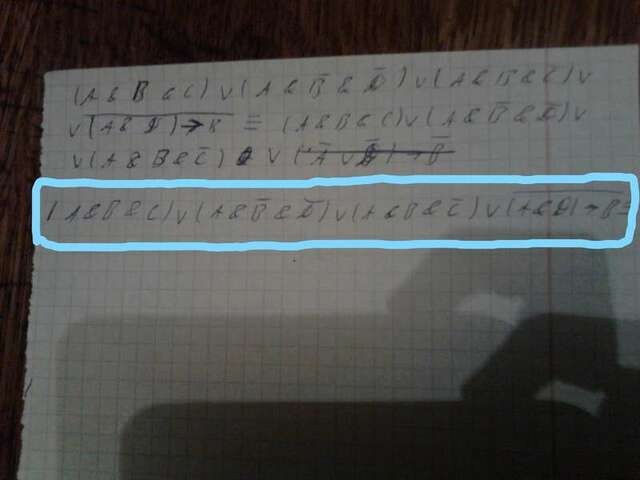 (A & B & C) ∨ (A & B̅ & D̅) ∨ (A & B & C̅) ∨
∨ (A & D) → B ≡ (A & B & C) ∨ (A & B̅ & D̅) ∨
∨ (A & B & C̅) ∨ (A̅ ∨ D̅) → B̅
(A & B & C) ∨ (A & B̅ & D̅) ∨ (A & B & C̅) ∨ (A & D) → B ≡